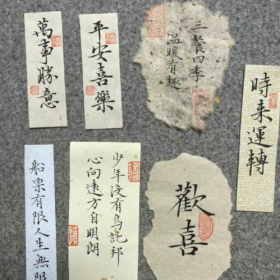 萬事勝意
平安喜樂
三餐四季
溫暖有趣
时来運轉
船票有限人生無限
少年没有乌託邦
心向遠方自明朗
歡喜